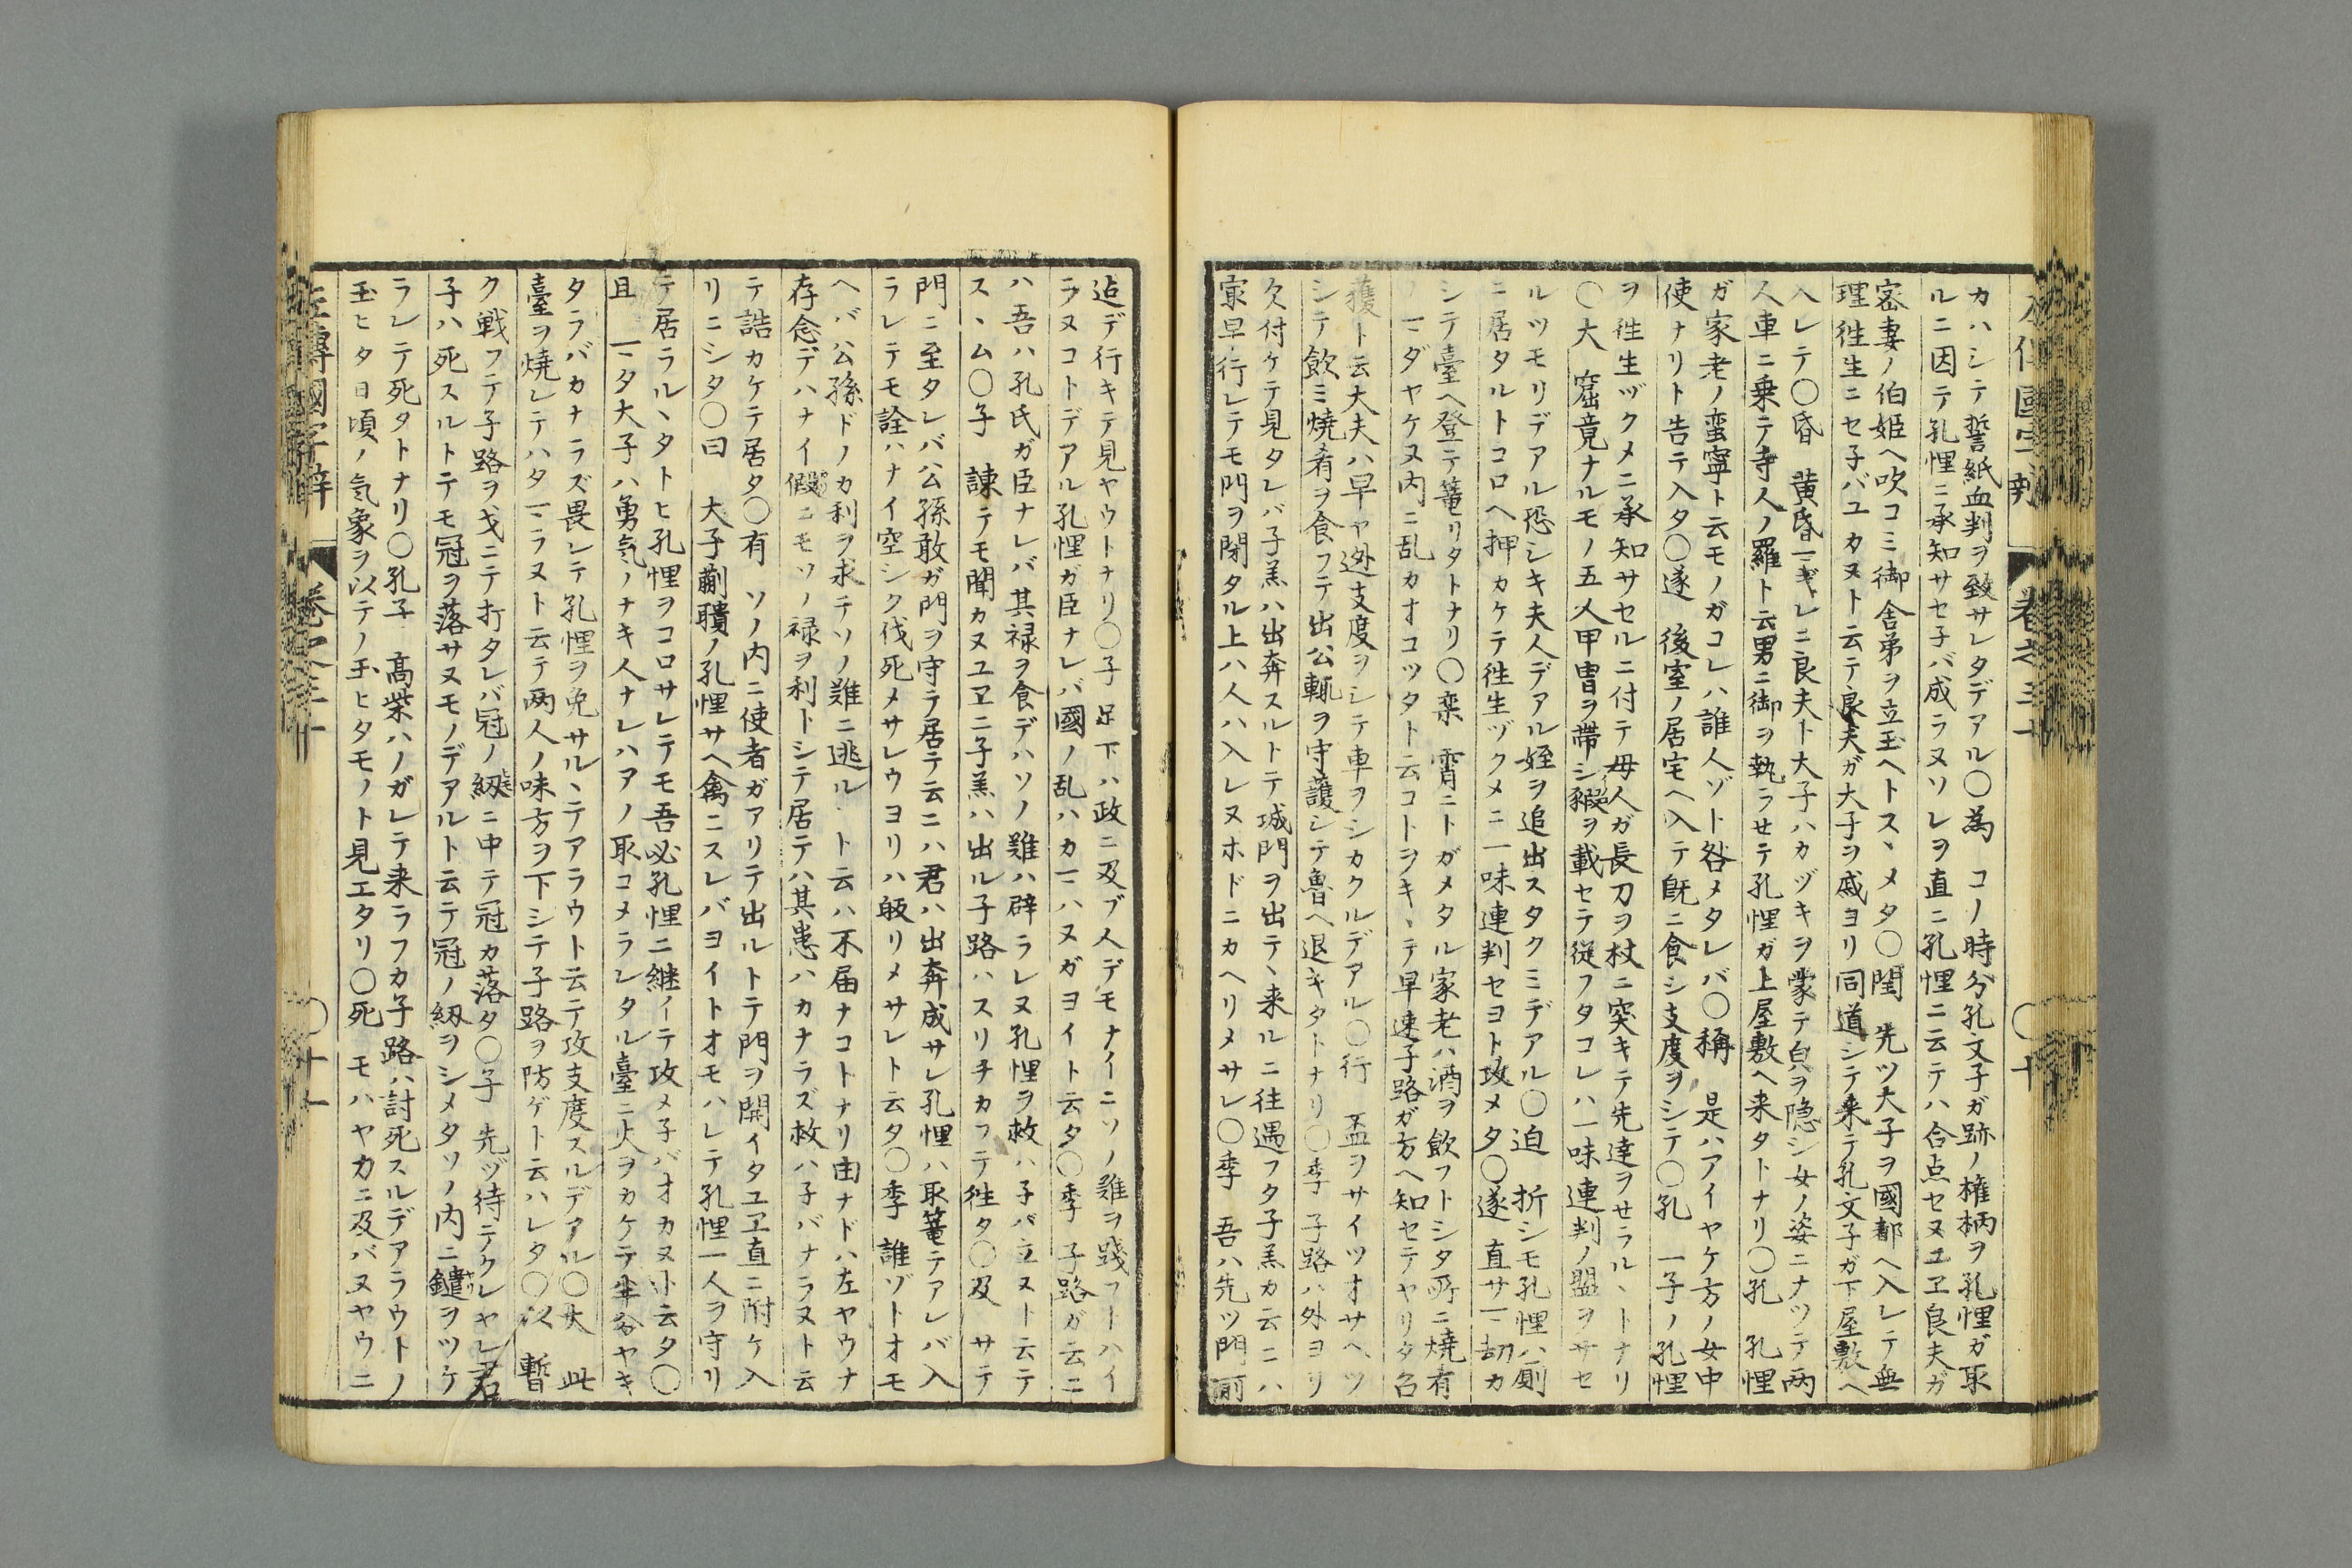 左傳國字辯 巻之三十 〇十
カハシテ誓紙血判ヲ致サレタデアル〇為 コノ時分孔文子ガ跡ノ権柄ヲ孔悝ガ取
ルニ因テ孔悝ニ承知サセ子バ成ラヌソレヲ直ニ孔悝ニ云テハ合点セヌユヱ良夫ガ
密妻ノ伯姫ヘ吹コミ御舎弟ヲ立玉ヘトスヽメタ〇閏 先ツ大子ヲ國都ヘ入レテ無
理徃生ニセ子バユカヌト云テ良夫ガ大子ヲ戚ヨリ同道シテ来テ孔文子ガ下屋敷ヘ
入レテ〇昏 黄昏マギレニ良夫ト大子ハカヅキヲ蒙テ㒵ヲ隠シ女ノ姿ニナツテ両
人車ニ乗テ寺人ノ羅ト云男ニ御ヲ執ラセテ孔悝ガ上屋敷ヘ来タトナリ〇孔 孔悝
ガ家老ノ蛮寧ト云モノガコレハ誰人ゾト咎メタレバ〇稱 是ハアイヤケ方ノ女中
使ナリト告テ入タ〇遂 後室ノ居宅ヘ入テ既ニ食シ支度ヲシテ〇孔 一子ノ孔悝
ヲ徃生ヅクメニ承知サセルニ付テ母人ガ長刀ヲ杖ニ突キテ先達ヲせラルヽトナリ
〇大 窟竟ナルモノ五人甲冑ヲ帯シ豭ヲ載セテ従フタコレハ一味連判ノ盟ヲサセ
ルツモリデアル恐シキ夫人デアル姪ヲ追出スタクミデアル〇迫 折シモ孔悝ハ厠
ニ居タルトコロヘ押カケテ徃生ヅクメニ一味連判セヨト攻メタ〇遂 直サマ劫カ
シテ臺ヘ登テ篭リタトナリ〇欒 霄ニトガメタル家老ハ酒ヲ飲フトシタ所ニ焼肴
マダヤケヌ内ニ乱カオコツタト云コトヲキヽテ早速子路ガ方ヘ知セテヤリタ召
獲ト云大夫ハ早ヤ逊支度ヲシテ車ヲシカクルデアル〇行 盃ヲサイツオサヘツ
シテ飲ミ焼肴ヲ食フテ出公輒ヲ守護シテ魯ヘ退キタトナリ〇季 子路ハ外ヨリ
欠付ケテ見タレバ子羔ハ出奔スルトテ城門ヲ出テヽ来ルニ往遇フタ子羔カ云ニハ
家早行レテモ門ヲ閉タル上ハ人ハ入レヌホドニカヘリメサレ〇季 吾ハ先ツ門前
迠デ行キテ見ヤウトナリ〇子 足下ハ政ニ及ブ人デモナイニソノ難ヲ踐フトハイ
ラヌコトデアル孔悝ガ臣ナレバ國ノ乱ハカマハヌガヨイト云タ〇季 子路ガ云ニ
ハ吾ハ孔氏ガ臣ナレバ其禄ヲ食デハソノ難ハ辟ラレヌ孔悝ヲ救ハ子バ立ヌト云テ
スヽム〇子 諫テモ聞カヌユヱニ子羔ハ出ル子路ハスリチカフテ徃タ〇及 サテ
門ニ至タレバ公孫敢ガ門ヲ守テ居テ云ニハ君ハ出奔成サレ孔悝ハ取篭テアレバ入
ラレテモ詮ハナイ空シク伐死メサレウヨリハ皈リメサレト云タ〇季 誰ゾトオモ
ヘバ公孫ドノカ利ヲ求テソノ難ニ逃ルヽト云ハ不届ナコトナリ由ナドハ左ヤウナ
存念デハナイ假ニモソノ禄ヲ利トシテ居テハ其患ハカナラズ救ハ子バナラヌト云
テ詰カケテ居タ〇有 ソノ内ニ使者ガアリテ出ルトテ門ヲ開イタユヱ直ニ附ケ入
リニシタ〇曰 大子蒯聵ノ孔悝サヘ禽ニスレバヨイトオモハレテ孔悝一人ヲ守リ
テ居ラルヽタトヒ孔悝ヲコロサレテモ吾必孔悝ニ継イテ攻メ子バオカヌト云タ〇
且 マタ大子ハ勇氣ノナキ人ナレハアノ取コメラレタル臺ニ火ヲカケテ半分ヤキ
タラバカナラズ畏レテ孔悝ヲ免サルヽテアラウト云テ攻支度スルデアル〇大 此
臺ヲ焼レテハタマラヌト云テ两人ノ味方ヲ下シテ子路ヲ防ゲト云ハレタ〇以 暫
ク戦フテ子路ヲ戈ニテ打タレバ冠ノ紉ニ中テ冠カ落タ〇子 先ヅ待テクレヤレ君
子ハ死スルトテモ冠ヲ落サヌモノデアルト云テ冠ノ紉ヲシメタソノ内ニ鑓ヲツケ
ラレテ死タトナリ〇孔子 高柴ハノガレテ来ラフカ子路ハ討死スルデアラウトノ
玉ヒタ日頃ノ気象ヲ以テノ玉ヒタモノト見エタリ〇死 モハヤカニ及バヌヤウニ
左傳國字辯 巻之三十 〇十一